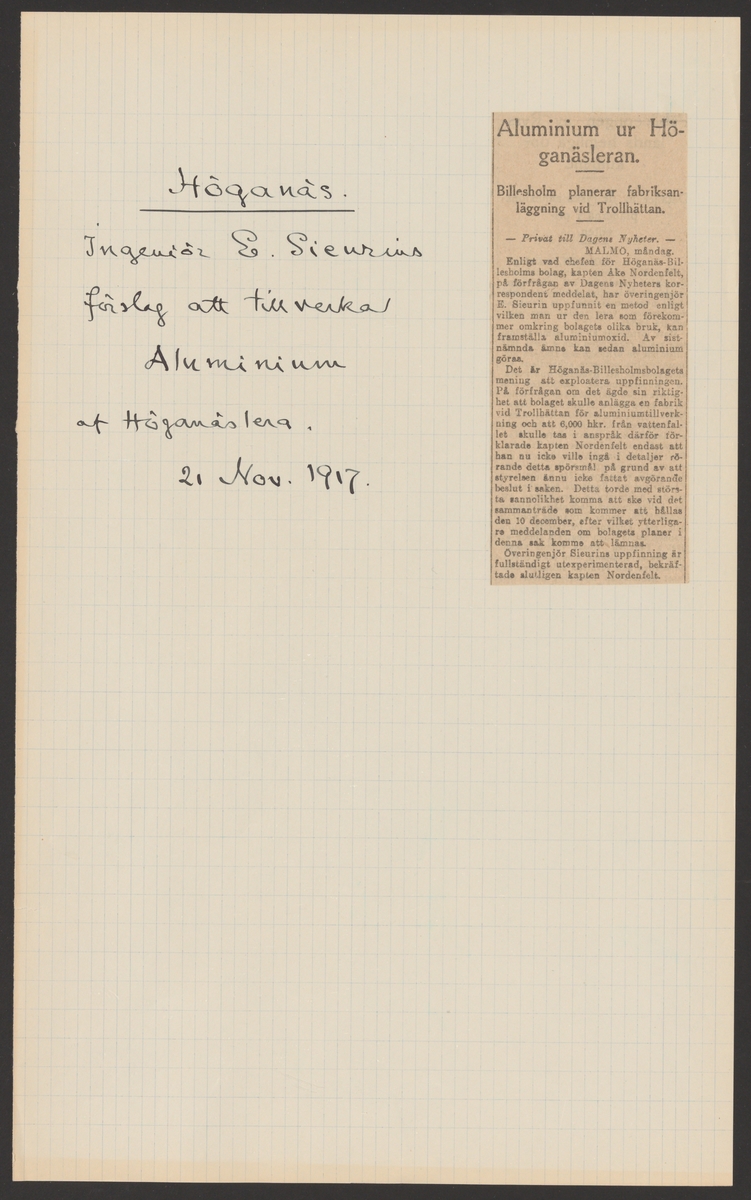 Höganäs.
Ingeniör E. Sieurins
förslag att tillverka
Aluminium
af Höganäslera.
21 Nov. 1917.
Aluminium ur Hö-
ganäsleran.
Billesholm planerar fabriksan-
läggning vid Trollhättan.
— Privat till Dagens Nyheter. —
MALMÖ, måndag.
Enligt vad chefen för Höganäs-Bil-
lesholms bolag, kapten Åke Nordenfelt,
på förfrågan av Dagens Nyheters kor-
respondent meddelat, har överingenjör
E. Sieurin uppfunnit en metod enligt
vilken man ur den lera som förekom-
mer omkring bolagets olika bruk, kan
framställa aluminiumoxid. Av sist-
nämnda ämne kan sedan aluminium
göras.
Det är Höganäs-Billesholmsbolagets
mening att exploatera uppfinningen.
På förfrågan om det ägde sin riktig-
het att bolaget skulle anlägga en fabrik
vid Trollhättan för aluminiumtillverk-
ning och att 6,000 hkr. från vattenfal-
let skulle tas i anspråk därför för-
klarade kapten Nordenfelt endast att
han nu icke ville ingå i detaljer rö-
rande detta spörsmål på grund av att
styrelsen ännu icke fattat avgörande
beslut i saken. Detta torde med störs-
ta sannolikhet komma att ske vid det
sammanträde som kommer att hållas
den 10 december, efter vilket ytterliga-
re meddelanden om bolagets planer i
denna sak komme att lämnas.
Överingenjör Sieurins uppfinning är
fullständigt utexperimenterad, bekräf-
tade slutligen kapten Nordenfelt.